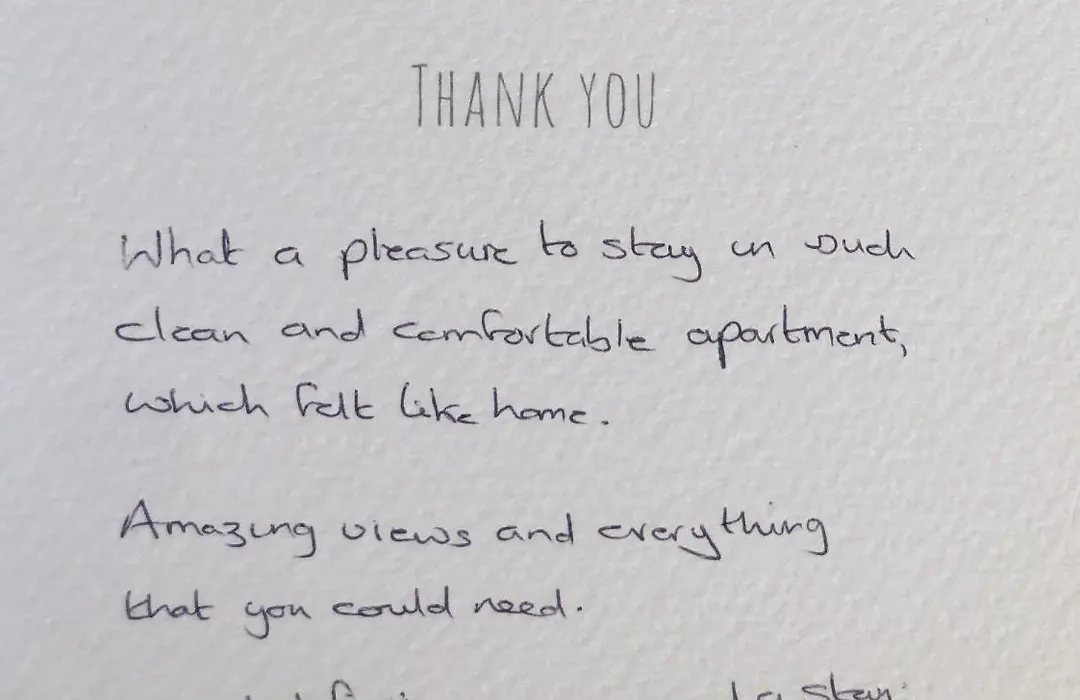 THANK YOU
What a pleasure to stay in such
clean and comfortable apartment,
which felt like home.
Amazing views and everything
that you could need.